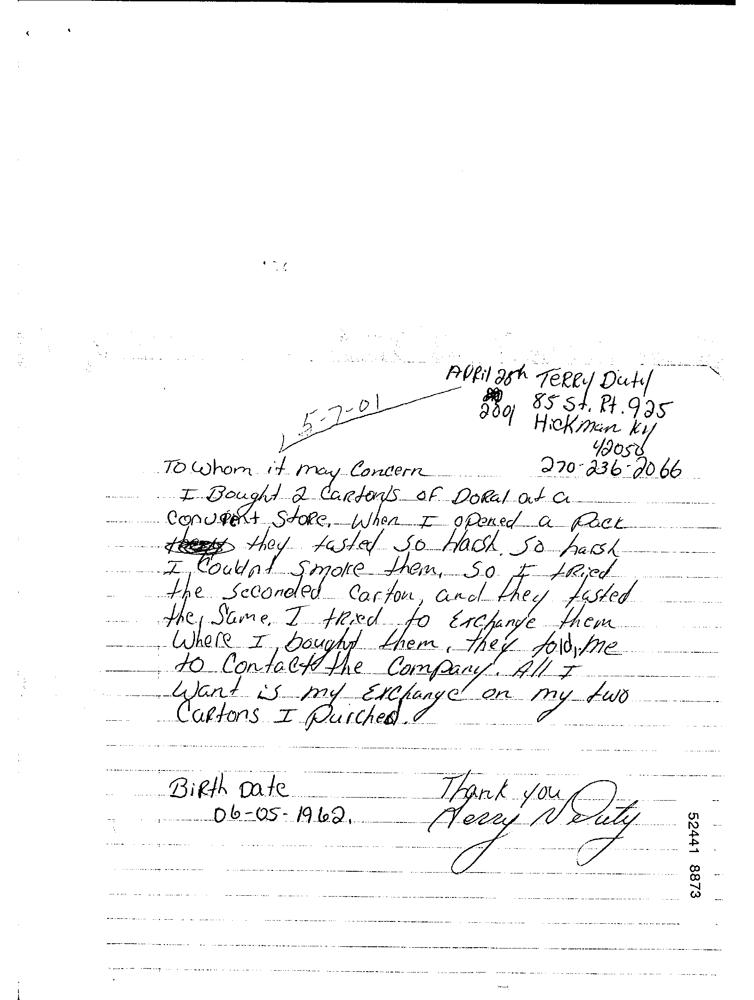 April 28th Terry Duty
2001 85 St. Rt. 925
Hickman Ky
42050
5-7-01
270-236-2066
To Whom it may Concern
I Bought 2 Carton's of Doral at a
Convient Store. When I opened a Pack
they tasted so Harsh. So harsh
I Couldnt Smoke them, So I tried
the Seconded Carton, and they tasted
the Same. I tried to Exchange them
Where I bought them, they told me
to Contact the Company. All I
Want is my Exchange on my two
Cartons I Purched.
Birth Date
06-05-1962.
Thank you
Terry N Duty
52441 8873